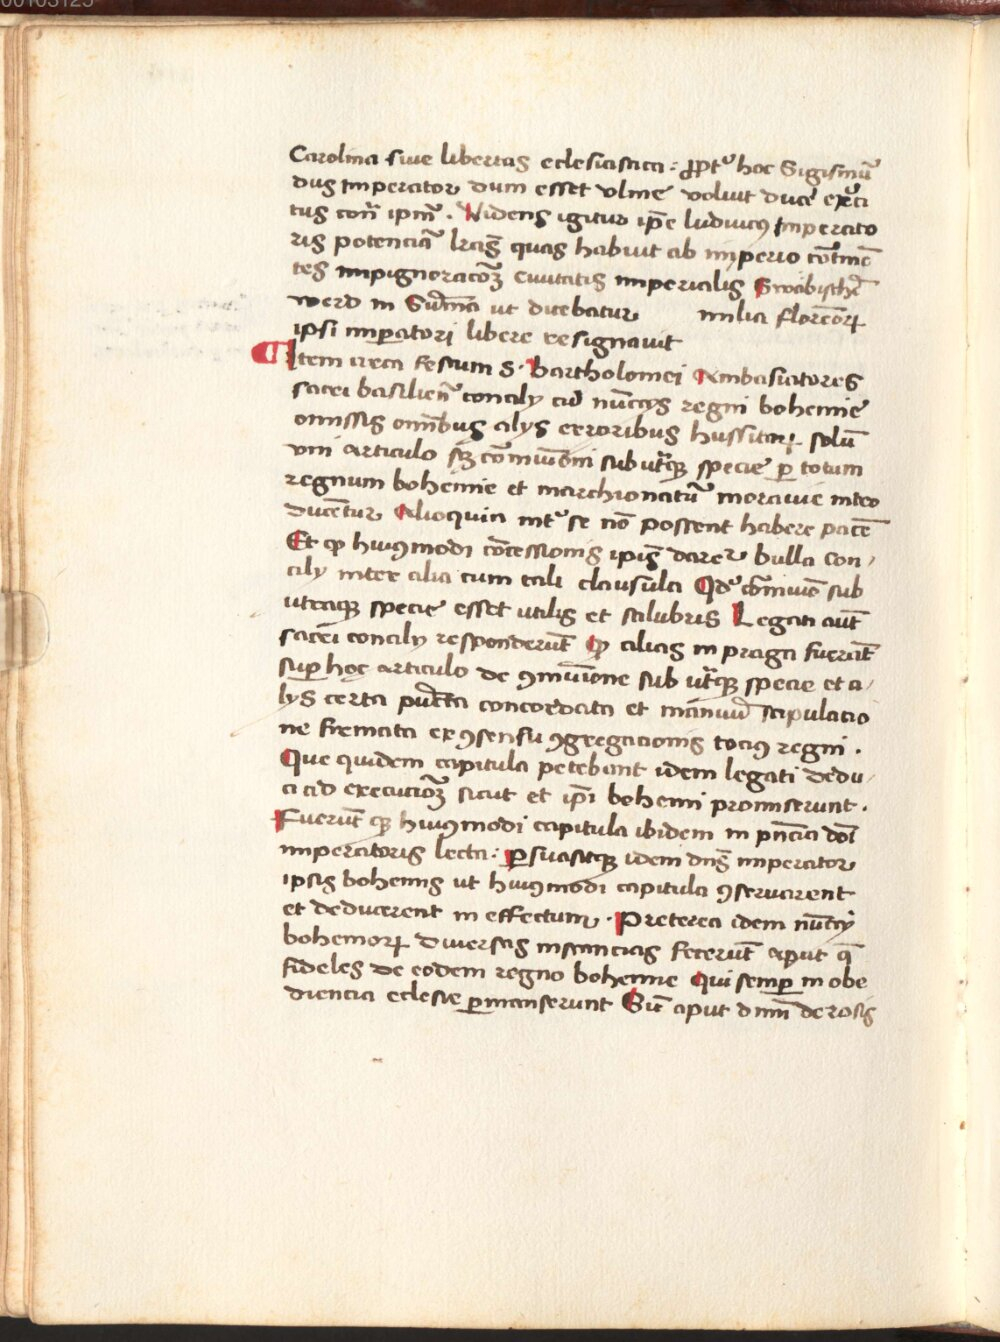 00103125
Carolina siue libertas eclesiastica : ꝓpt᷒ hoc Sigismū
dus Imperator dum esset vlme voluit duce᷑ ex᷑ci
tus con᷑ ipm̄ . Videns igitur ip̄e ludwicꝯ Imperato
ris potenciā lr̄as quas habuit ab imperio cōtinē
tes impignoracōꝫ ciuitatis imperialis Swebisch
werd in Sum̄a ut dicebatur milia florenoꝝ
ipsi imꝑatori libere resignauit
Item circa festum S. Bartholomei Ambasiatores
sacri basilien̄ concilij cū nūccijs regni bohemie
omissis om̄ibus alijs erroribus hussitaꝝ solū
vni articulo sꝫ cōmuniōni sub utᷓqꝫ specie ꝑ totum
regnum bohemie et marchionatū morauie intro
ducētur Alioquin int᷒ se nō possent habere pacē
Et ꝙ huiꝯmodi cōcessionis ip̄is daret᷑ bulla con
cilij inter alia cum tali clausula Qd᷒ cōmunio sub
utraqꝫ specie esset utilis et salubris Legati aūt
sacri concilij responderūt ꝙ alias in praga fuerāt
suꝑ hoc articulo de ꝯmunione sub utᷓqꝫ specie et a
lijs certa pūcta concordata et manuū stipulacio
ne firmata ex ꝯsensu ꝯgregacionis tociꝯ regni .
Que quidem capitula petebant idem legati dedu
ci ad execuciōꝫ sicut et ip̄i bohemi promiserunt .
Fuerūt qꝫ huiꝯmodi capitula ibidem in pn̄cia dn̄i
imperatoris lecta : ꝑsuasitqꝫ idem dn̄s imperator
ipsis bohemis ut huiꝯmodi capitula ꝯseruarent
et deducerent in effectum . Preterea idem nūccij
bohemoꝝ diuersas instancias fecerūt aput q̄
fideles de eodem regno bohemie Qui semꝑ in obe
diencia eclesie ꝑmanserunt Siue᷑ aput dn̄m de rosis